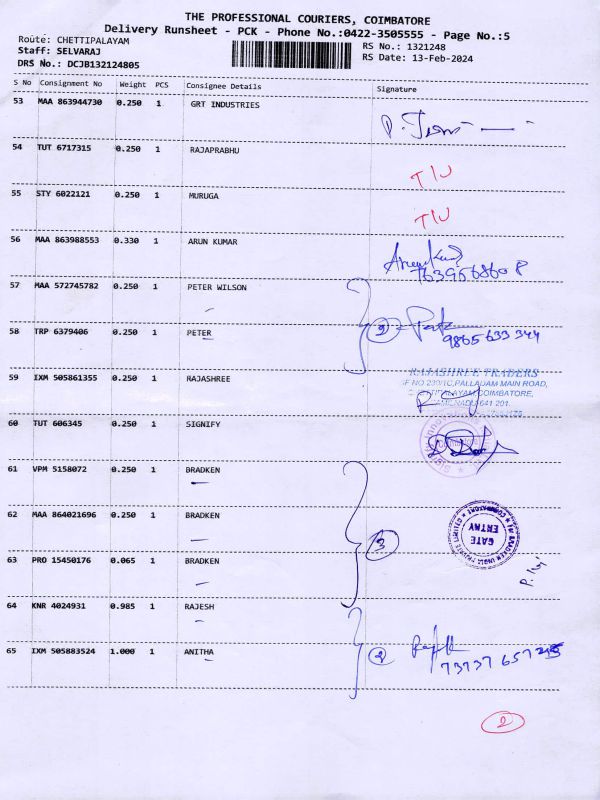 THE PROFESSIONAL COURIERS, COIMBATORE
Delivery Runsheet - PCK - Phone No.:0422-3505555 - Page No.:5
Route: CHETTIPALAYAM RS No.: 1321248
Staff: SELVARAJ RS Date: 13-Feb-2024
DRS No.: DCJB132124805
S No Consignment No Weight PCS Consignee Details Signature
53 MAA 863944730 0.250 1 GRT INDUSTRIES
54 TUT 6717315 0.250 1 RAJAPRABHU T/U
55 STY 6022121 0.250 1 MURUGA T/U
56 MAA 863988553 0.330 1 ARUN KUMAR
57 MAA 572745782 0.250 1 PETER WILSON
58 TRP 6379406 0.250 1 PETER 2 9865633344
59 IXM 505861355 0.250 1 RAJASHREE
RAJASHREE TRADERS
SF NO 230/1C, PALLADAM MAIN ROAD,
COIMBATORE,
TAMILNADU 641 201.
60 TUT 606345 0.250 1 SIGNIFY
61 VPM 5158072 0.250 1 BRADKEN
62 MAA 864021696 0.250 1 BRADKEN 3
GATE ENTRY
BRADKEN INDIA PRIVATE LIMITED
COIMBATORE
63 PRO 15450176 0.065 1 BRADKEN
64 KNR 4024931 0.985 1 RAJESH
65 IXM 505883524 1.000 1 ANITHA 2
2